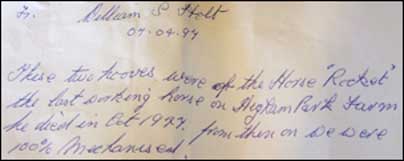 Fr. William S. Holt
07.04.94
These two hooves were of the Horse "Rocket"
the last working horse on Higham Park Farm
he died in Oct 1947. from then on we were
100% Mechanised.